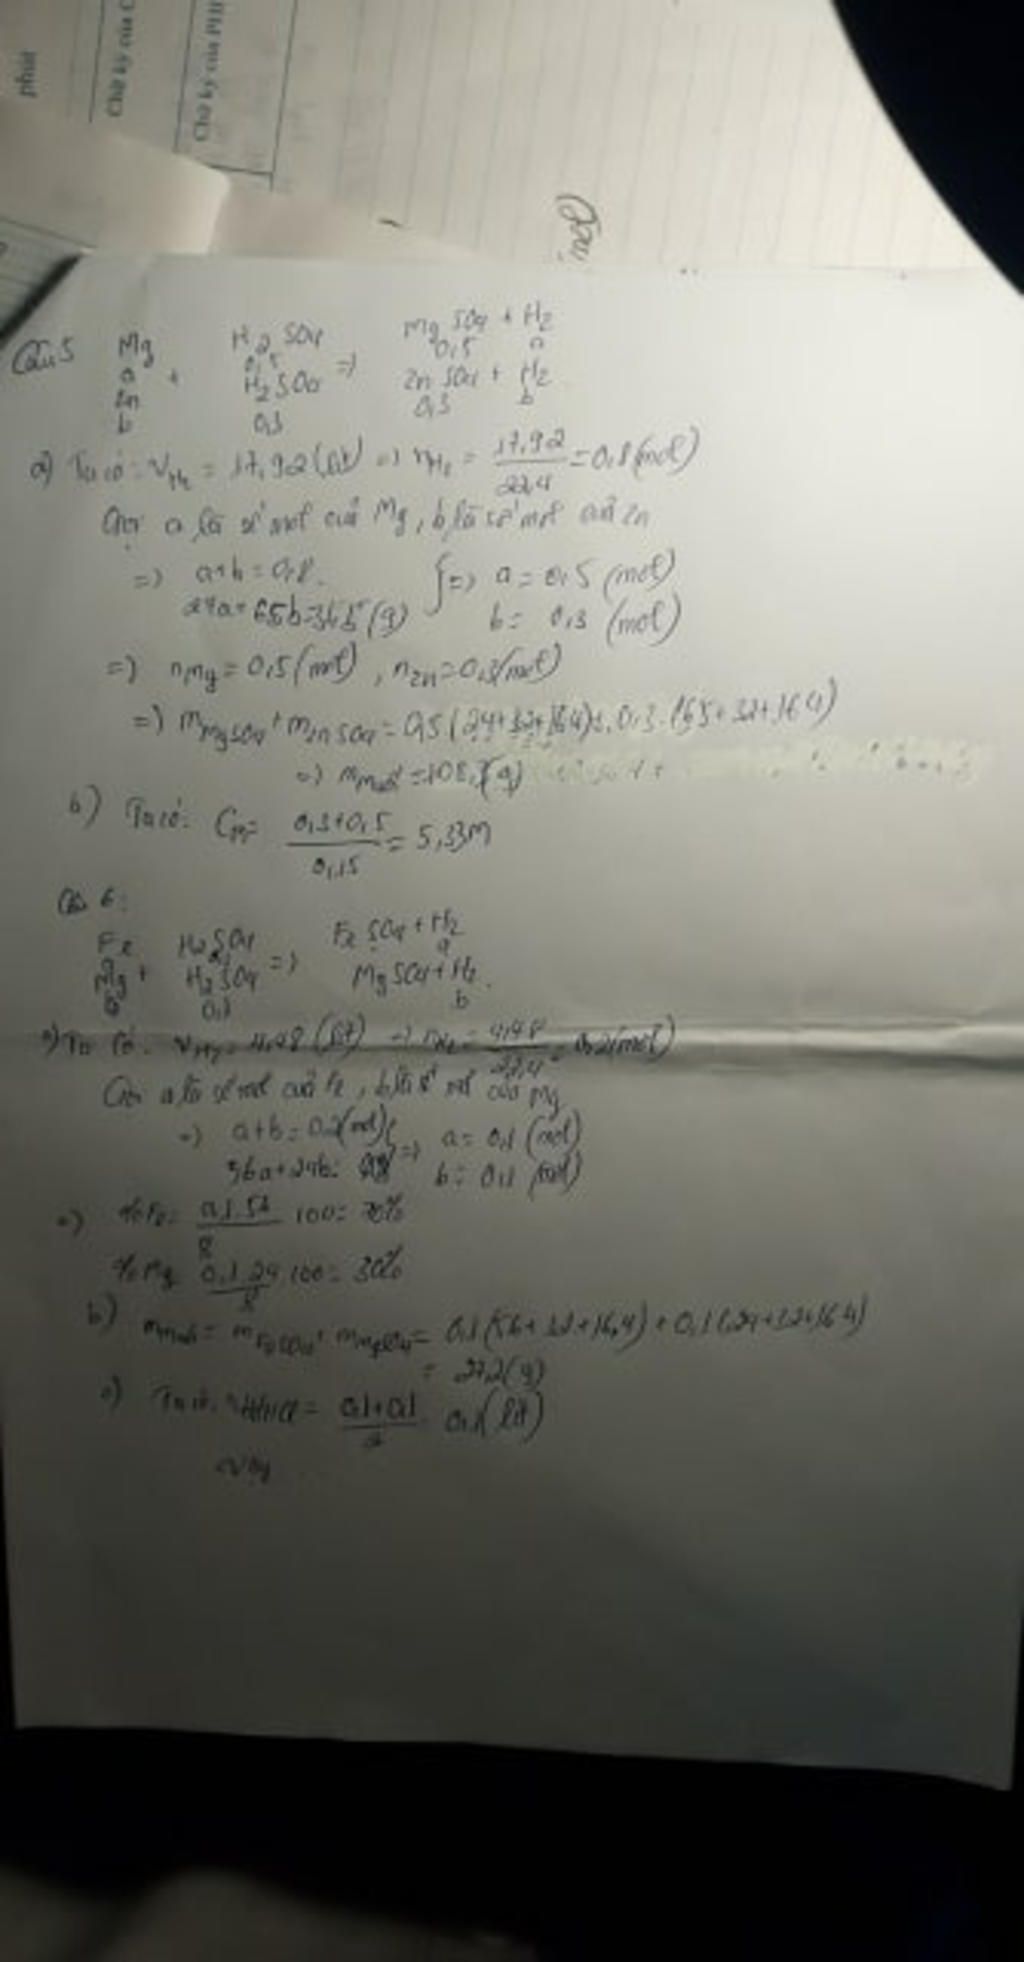 phút
Chữ ký của
Chữ ký của PH
Câu
Câu 5 Mg H2SO4 MgSO4 + H2
a + 0,5 => 0,5 a
Zn H2SO4 ZnSO4 + H2
b 0,3 0,3 b
a) Ta có: VH2 = 17,92 (lít) => nH2 = 17,92/22,4 = 0,8 (mol)
Gọi a là số mol của Mg, b là số mol của Zn
=> a+b = 0,8
24a + 65b = 31,5 (g) } => a = 0,5 (mol)
b = 0,3 (mol)
=> nMg = 0,5 (mol), nZn = 0,3 (mol)
=> mMgSO4 + mZnSO4 = 0,5 (24+32+16.4) + 0,3 . (65+32+16.4)
=> mmuối = 108,3 (g)
b) Ta có: CM = 0,3+0,5/0,15 = 5,33M
Câu 6:
Fe H2SO4 FeSO4 + H2
a => a
Mg + H2SO4 MgSO4 + H2
0,1 b
a) Ta có: VH2 = 4,48 (lít) => nH2 = 4,48/22,4 = 0,2 (mol)
Gọi a là số mol của Fe, b là số mol của Mg
=> a+b = 0,2 (mol) } => a = 0,1 (mol)
56a + 24b = 8 b = 0,1 (mol)
%Fe = 0,1.56/8 100 = 70%
%Mg 0,1.24/8 100 = 30%
b) mmuối = mFeSO4 + mMgSO4 = 0,1 (56+32+16.4) + 0,1 (24+32+16.4)
= 27,2 (g)
c) Ta có: = 0,1+0,1/2 0,1 (lít)
Vậy